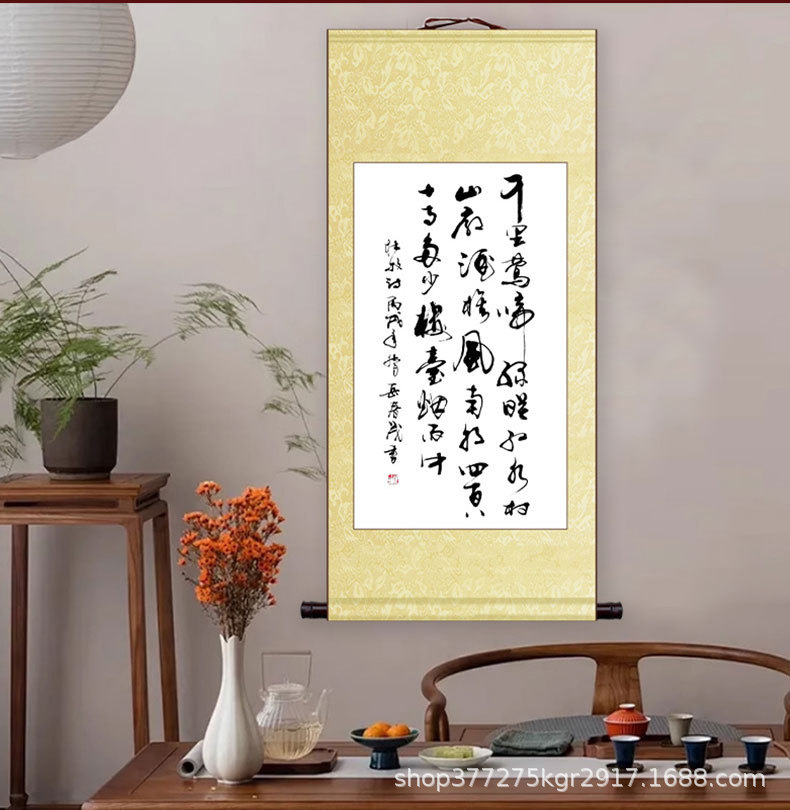 千里鶯啼綠映紅水村
山郭酒旗風南朝四百八
十寺多少樓臺烟雨中
杜牧詩丙戌年春書
shop377275kgr2917.1688.com